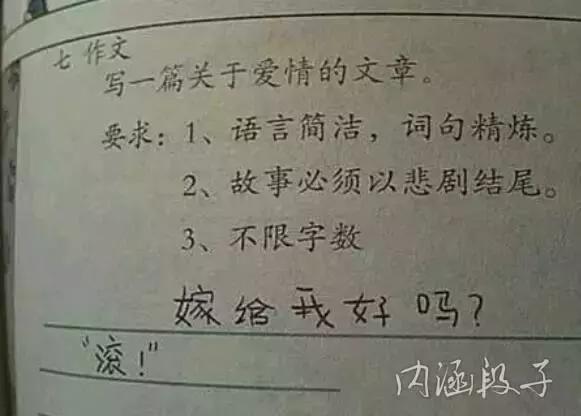 七 作文
写一篇关于爱情的文章。
要求：1、语言简洁，词句精炼。
2、故事必须以悲剧结尾。
3、不限字数
嫁给我好吗？
“滚！”
内涵段子